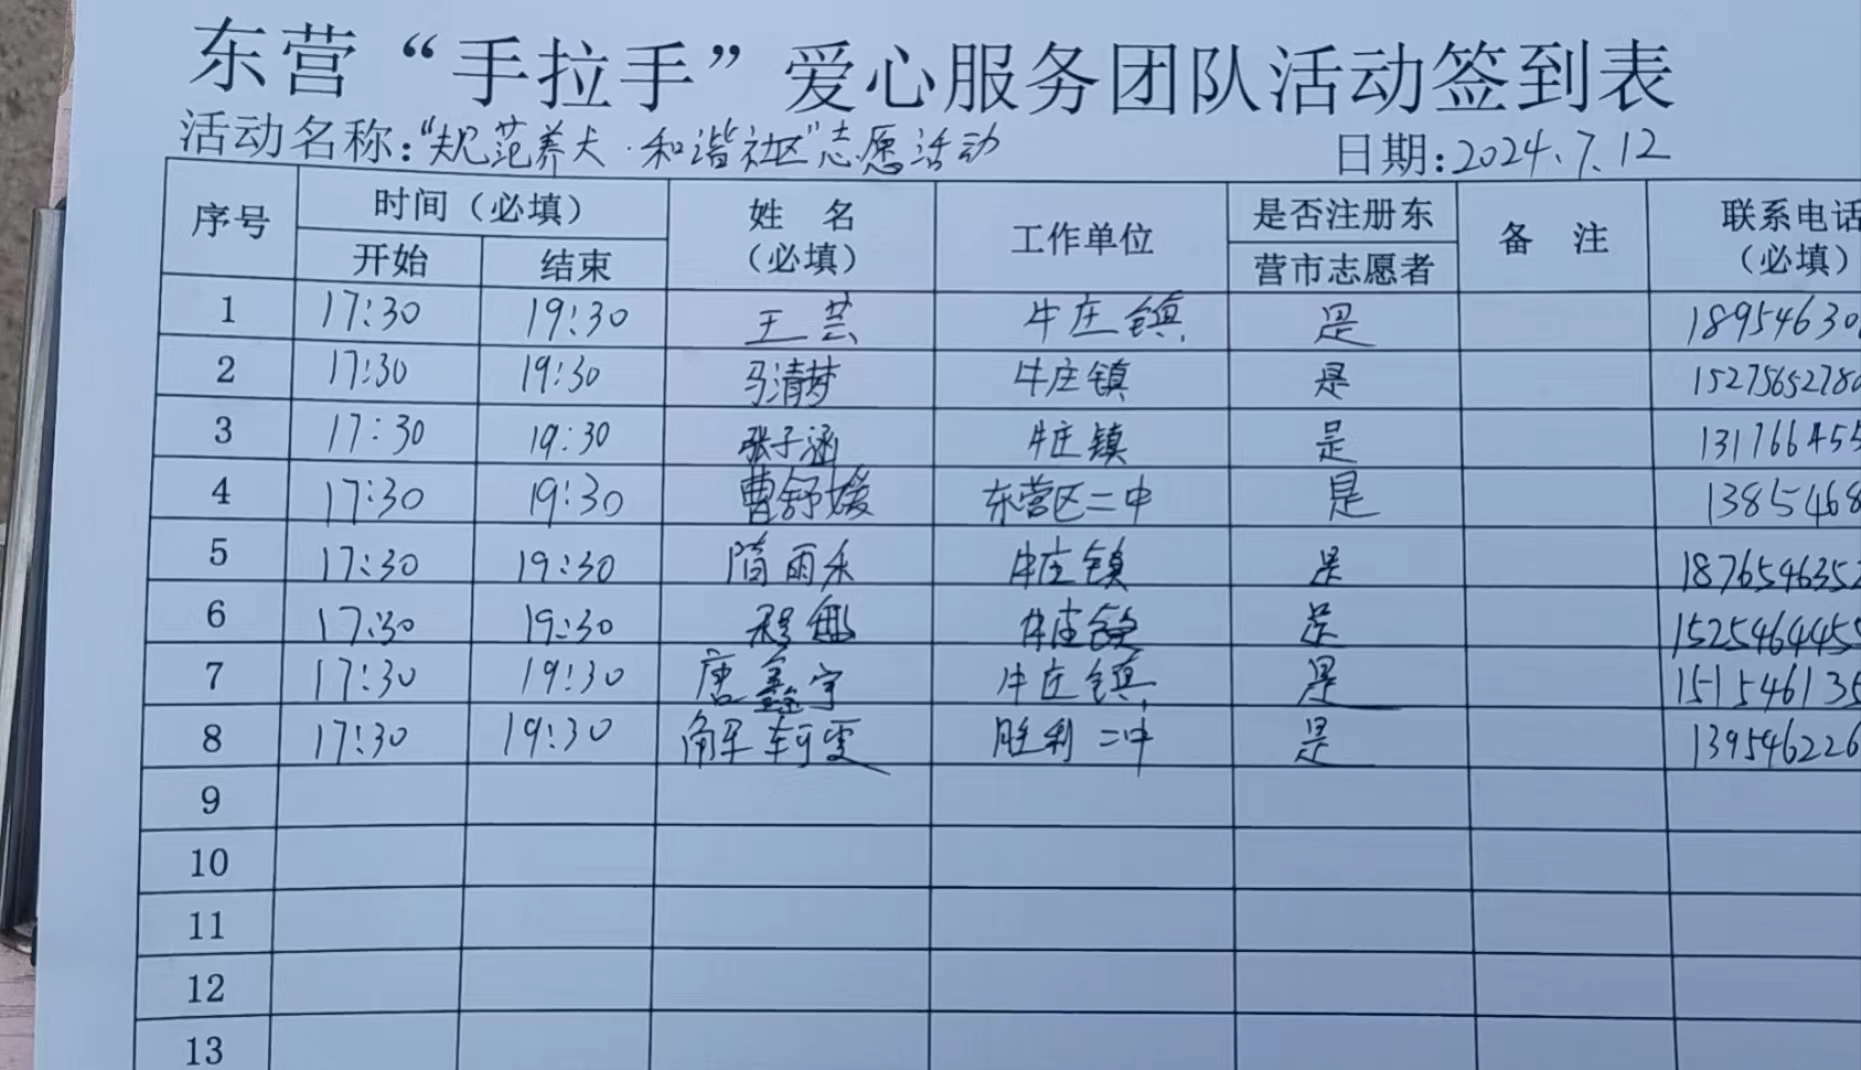 东营“手拉手”爱心服务团队活动签到表
活动名称:“规范养犬·和谐社区”志愿活动 日期:2024.7.12
序号 时间(必填) 姓 名 工作单位 是否注册东 备 注 联系电话
开始 结束 (必填) 营市志愿者 (必填)
1 17:30 19:30 王芸 牛庄镇 是 18954630
2 17:30 19:30 马清梦 牛庄镇 是 1527565278
3 17:30 19:30 张子涵 牛庄镇 是 131766455
4 17:30 19:30 曹舒媛 东营区二中 是 1385468
5 17:30 19:30 隋雨禾 牛庄镇 是 187654635
6 17:30 19:30 牛庄镇 是 1525464455
7 17:30 19:30 唐鑫宇 牛庄镇 是 151546135
8 17:30 19:30 解轲雯 胜利二中 是 139546226
9
10
11
12
13